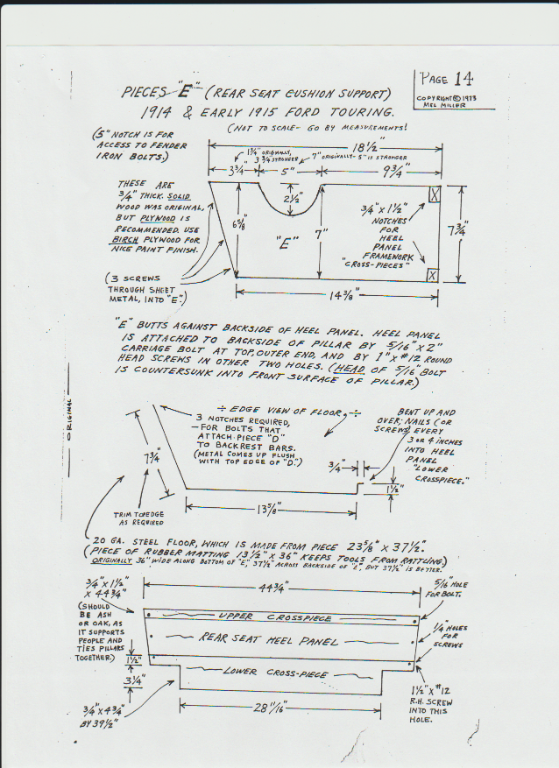 PAGE 14
COPYRIGHT © 1973
MEL MILLER
PIECES "E" (REAR SEAT CUSHION SUPPORT)
1914 & EARLY 1915 FORD TOURING.
(NOT TO SCALE - GO BY MEASUREMENTS!
(5" NOTCH IS FOR
ACCESS TO FENDER
IRON BOLTS.)
18 1/2"
3 3/4"
5"
9 3/4"
2 1/2"
THESE ARE
3/4" THICK. SOLID
WOOD WAS ORIGINAL,
BUT PLYWOOD IS
RECOMMENDED. USE
BIRCH PLYWOOD FOR
NICE PAINT FINISH.
6 5/8"
"E"
7"
3/4" X 1 1/2"
NOTCHES
FOR
HEEL
PANEL
FRAMEWORK
"CROSS-PIECES"
X
X
7 3/4"
(3 SCREWS
THROUGH SHEET
METAL, INTO "E".)
14 3/8"
"E" BUTTS AGAINST BACKSIDE OF HEEL PANEL. HEEL PANEL
IS ATTACHED TO BACKSIDE OF PILLAR BY 5/16" X 2"
CARRIAGE BOLT AT TOP, OUTER END, AND BY 1" X #12 ROUND
HEAD SCREWS IN OTHER TWO HOLES. (HEAD OF 5/16" BOLT
IS COUNTERSUNK INTO FRONT SURFACE OF PILLAR.)
ORIGINAL
÷ EDGE VIEW OF FLOOR ÷
3 NOTCHES REQUIRED,
- FOR BOLTS THAT
ATTACH PIECE "D"
TO BACKREST BARS.
(METAL COMES UP FLUSH
WITH TOP EDGE OF "D".)
BENT UP AND
OVER, NAILS (OR
SCREWS) EVERY
3 OR 4 INCHES
INTO HEEL
PANEL
"LOWER
CROSSPIECE."
7 3/4"
3/4"
1 1/8"
13 5/8"
TRIM TOP EDGE
AS REQUIRED
20 GA. STEEL FLOOR, WHICH IS MADE FROM PIECE 23 5/8" X 37 1/2".
(PIECE OF RUBBER MATTING 13 1/2" X 36" KEEPS TOOLS FROM RATTLING)
ORIGINALLY 36" WIDE ALONG BOTTOM OF "E," 37 1/2" ACROSS BACKSIDE OF BUT 37 1/2" IS BETTER.
44 3/4"
3/4" X 1 1/2"
X 44 3/4"
(SHOULD
BE ASH
OR OAK, AS
IT SUPPORTS
PEOPLE AND
TIES PILLARS
TOGETHER)
UPPER CROSSPIECE
REAR SEAT HEEL PANEL
LOWER CROSS-PIECE
5/16" HOLE
FOR BOLT.
1/4" HOLES
FOR
SCREWS
1 1/2"
3 1/4"
3/4" X 4 3/4"
BY 39 1/2"
28 11/16"
1 1/2" X #12
R.H. SCREW
INTO THIS
HOLE.